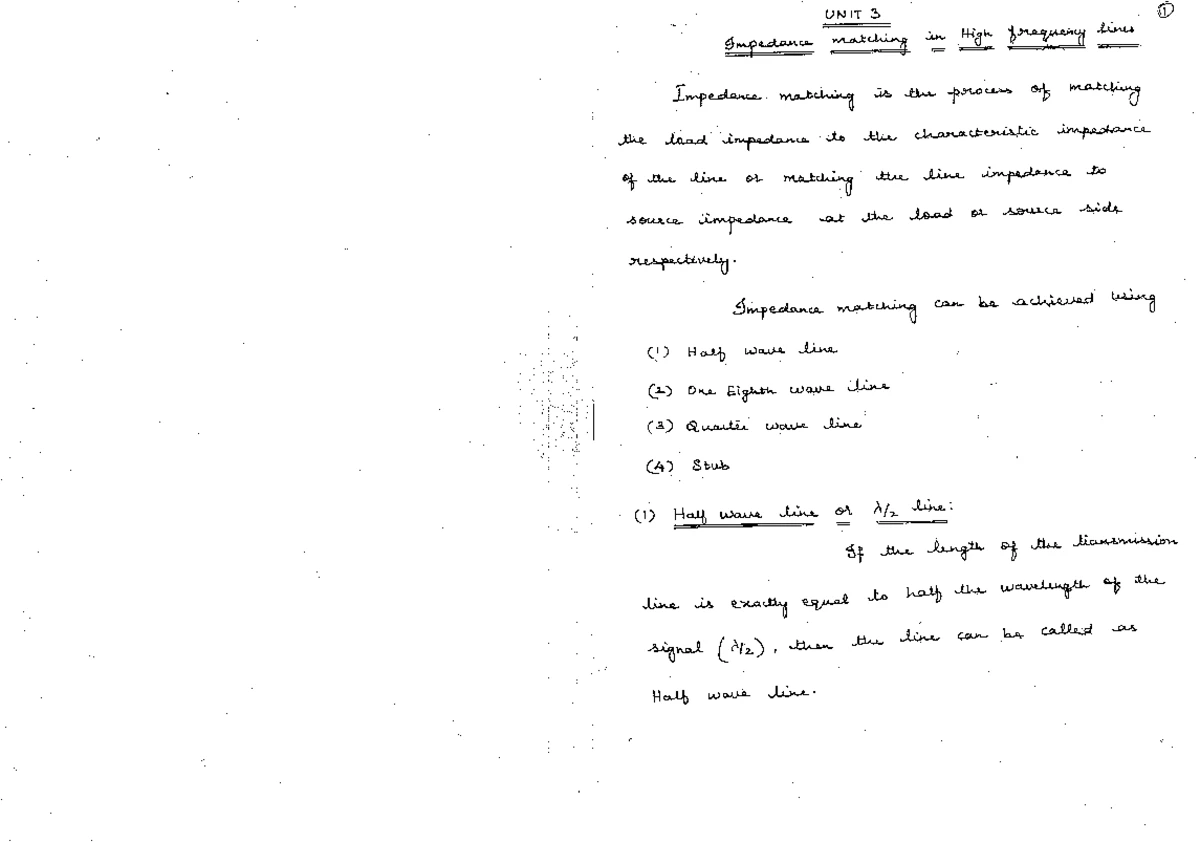 ①
UNIT 3
Impedance matching in High frequency lines
Impedance matching is the process of matching
the load impedance to the characteristic impedance
of the line or matching the line impedance to
source impedance at the load or source side
respectively.
Impedance matching can be achieved using
(1) Half wave line
(2) One Eighth wave line
(3) Quarter wave line
(4) Stub
(1) Half wave line or λ/2 line:
If the length of the transmission
line is exactly equal to half the wavelength of the
signal (λ/2), then the line can be called as
Half wave line.